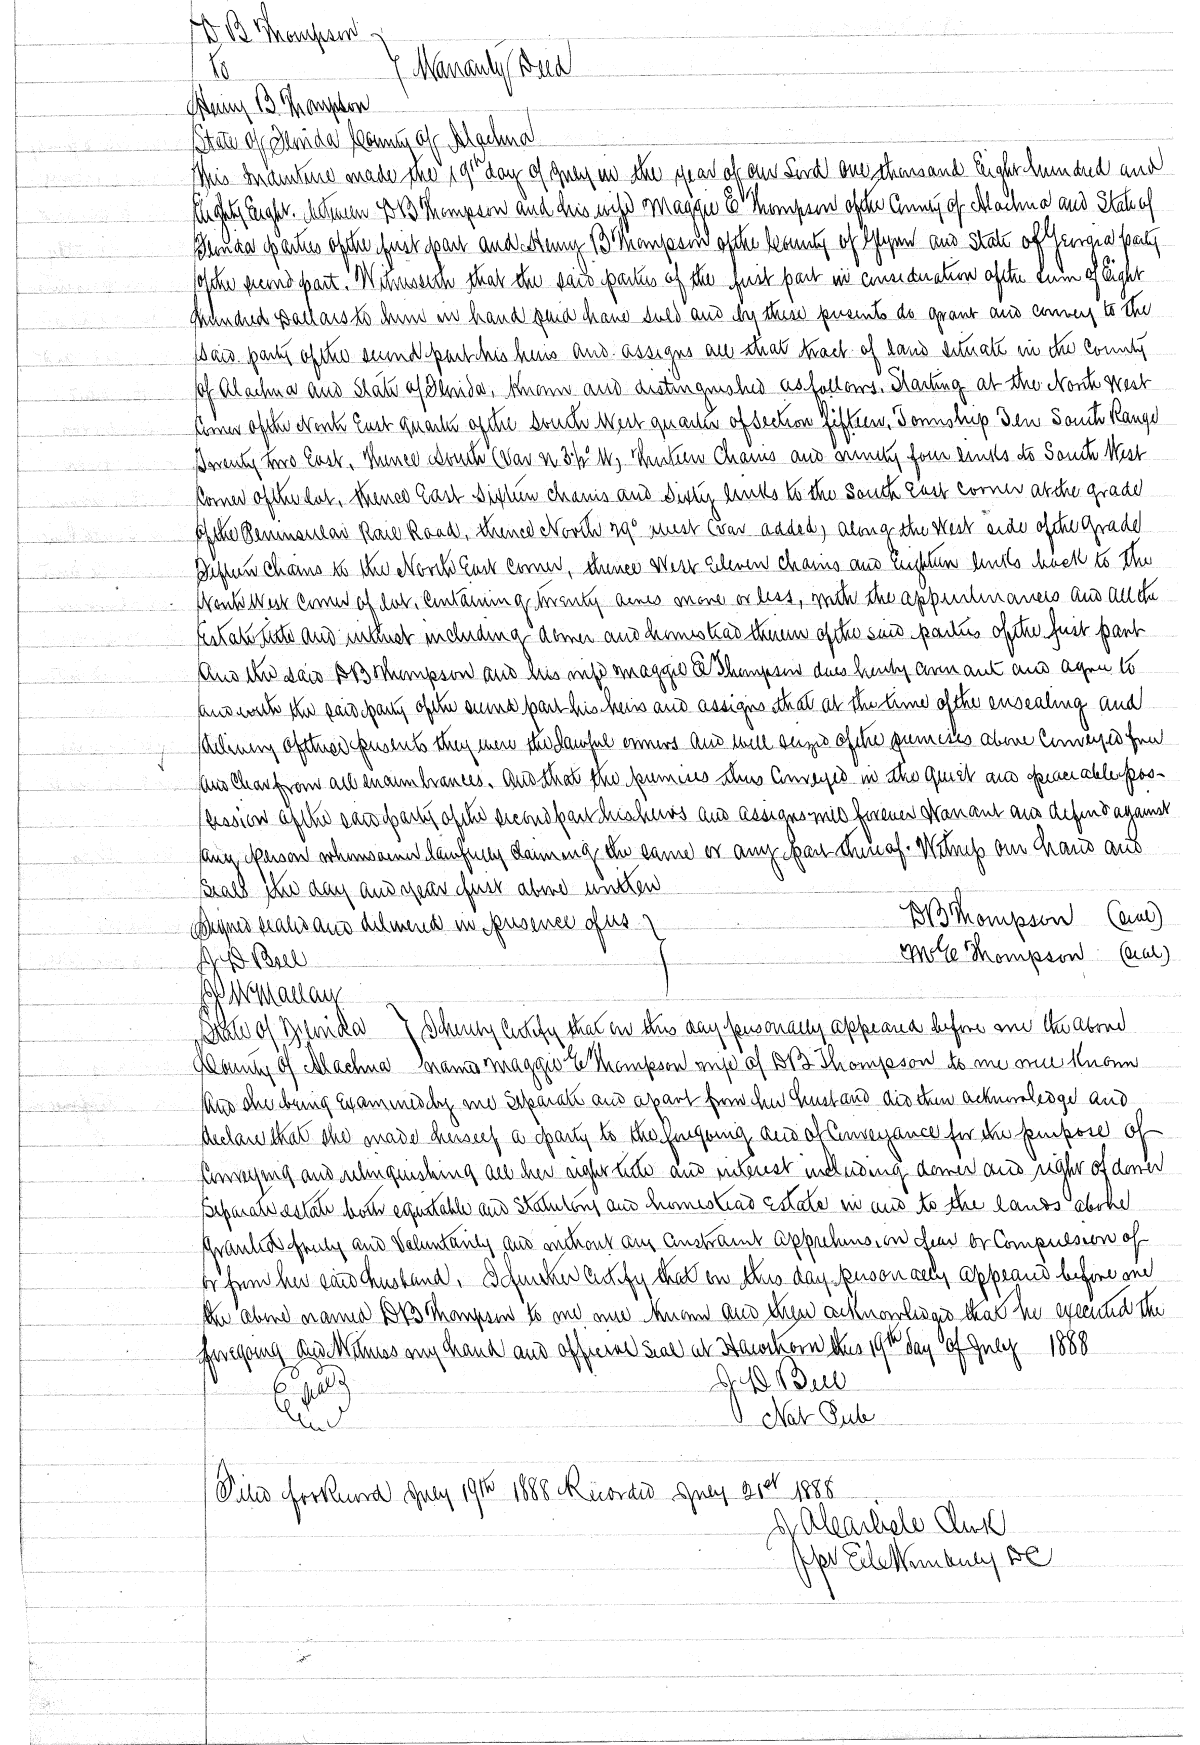 D B Thompson
to
Warranty Deed
Henry B Thompson
State of Florida County of Alachua
This Indenture made the 19th day of July in the year of our Lord one thousand Eight hundred and
Eighty Eight. Between D B Thompson and his wife Maggie E Thompson of the County of Alachua and State of
Florida parties of the first part and Henry B Thompson of the County of Glynn and State of Georgia party
of the second part. Witnesseth that the said parties of the first part in consideration of the sum of Eight
Hundred Dollars to him in hand paid have sold and by these presents do grant and convey to the
Said party of the second part his heirs and assigns all that tract of land situate in the County
of Alachua and State of Florida, known and distinguished as follows. Starting at the North West
Corner of the North East quarter of the South West quarter of Section fifteen, Township Ten South Range
Twenty two East, Thence South (Var N 3½° W) Thirteen Chains and ninety four links to South West
Corner of the lot, thence East Sixteen chains and Sixty links to the South East corner at the grade
of the Peninsular Rail Road, thence North 29° west (var added) along the West side of the Grade
Fifteen Chains to the North East Corner, thence West Eleven chains and Eighteen links back to the
North West Corner of lot, Containing twenty acres more or less, with the appurtenances and all the
Estate title and interest including dower and homestead therein of the said parties of the first part
And the said D B Thompson and his wife Maggie E Thompson does hereby covenant and agree to
and with the said party of the second part his heirs and assigns that at the time of the ensealing and
delivery of these presents they were the lawful owners and well seized of the premises above Conveyed free
and Clear from all encumbrances. And that the premises thus Conveyed in the Quiet and peaceable pos-
session of the said party of the second part his heirs and assigns will forever Warrant and defend against
any person whomsoever lawfully claiming the same or any part thereof. Witness our hand and
Seals the day and year first above written
Signed sealed and delivered in presence of us
D B Thompson (seal)
J D Bell
M E Thompson (seal)
W Mallay
State of Florida I hereby Certify that on this day personally appeared before me the above
County of Alachua named Maggie E Thompson wife of D B Thompson to me well known
And she being Examined by me Separate and apart from her husband did then acknowledge and
declare that she made herself a party to the foregoing deed of Conveyance for the purpose of
Conveying and relinquishing all her right title and interest including dower and right of dower
Separate estate both equitable and Statutory and homestead Estate in and to the lands above
Granted freely and Voluntarily and without any Constraint apprehension fear or Compulsion of
or from her said husband. I further Certify that on this day personally appeared before me
the above named D B Thompson to me well known and then acknowledged that he executed the
foregoing deed Witness my hand and official Seal at Hawthorn this 19th day of July 1888
J D Bell
Not Pub
Filed for Record July 19th 1888 Recorded July 21st 1888
J A Carlisle Clerk
per DC